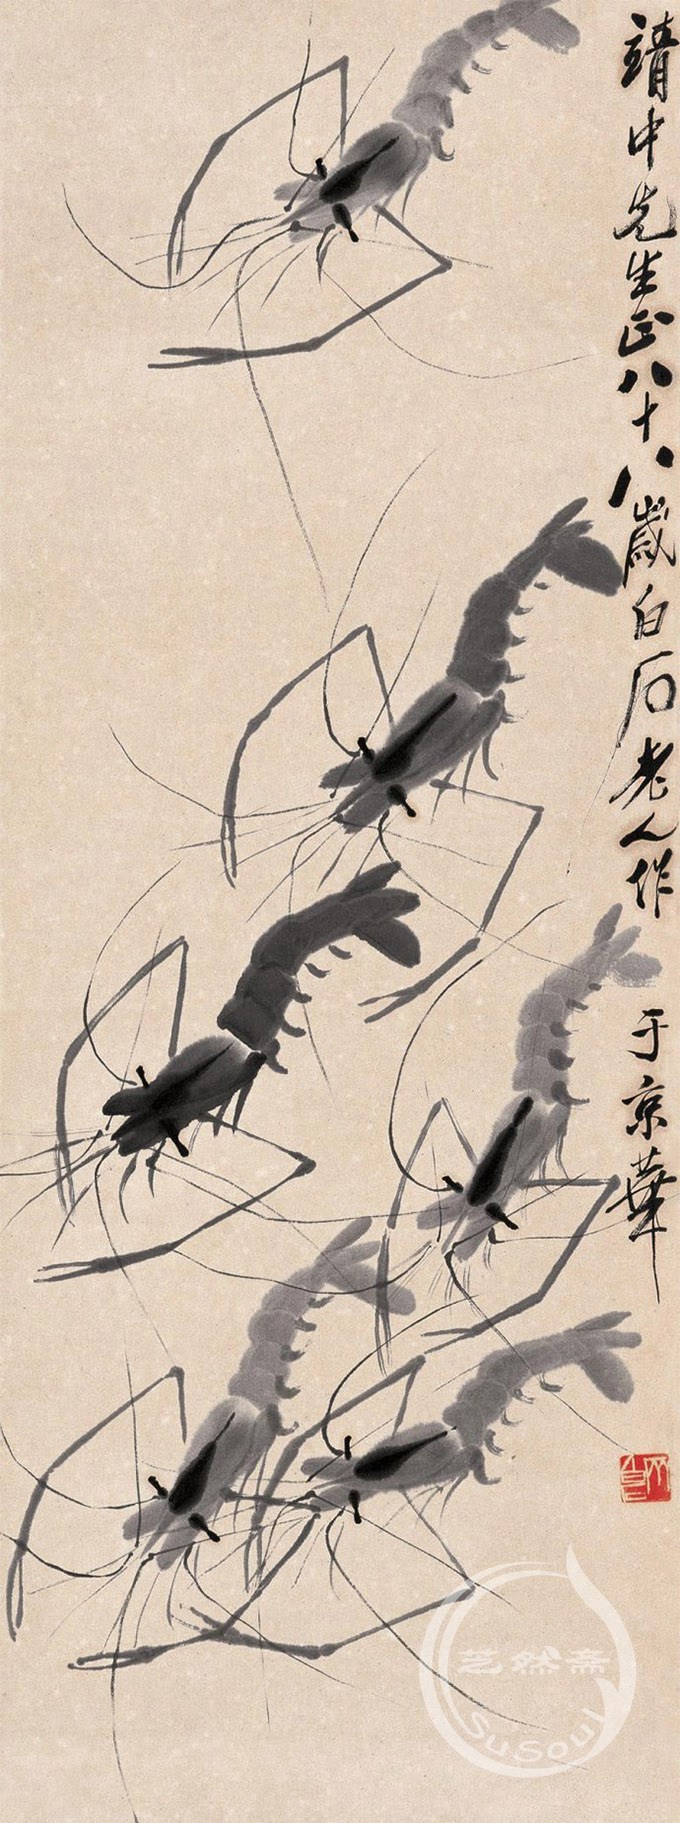 靖中先生正八十八歲白石老人作
于京華
芝然斋
SuSoul